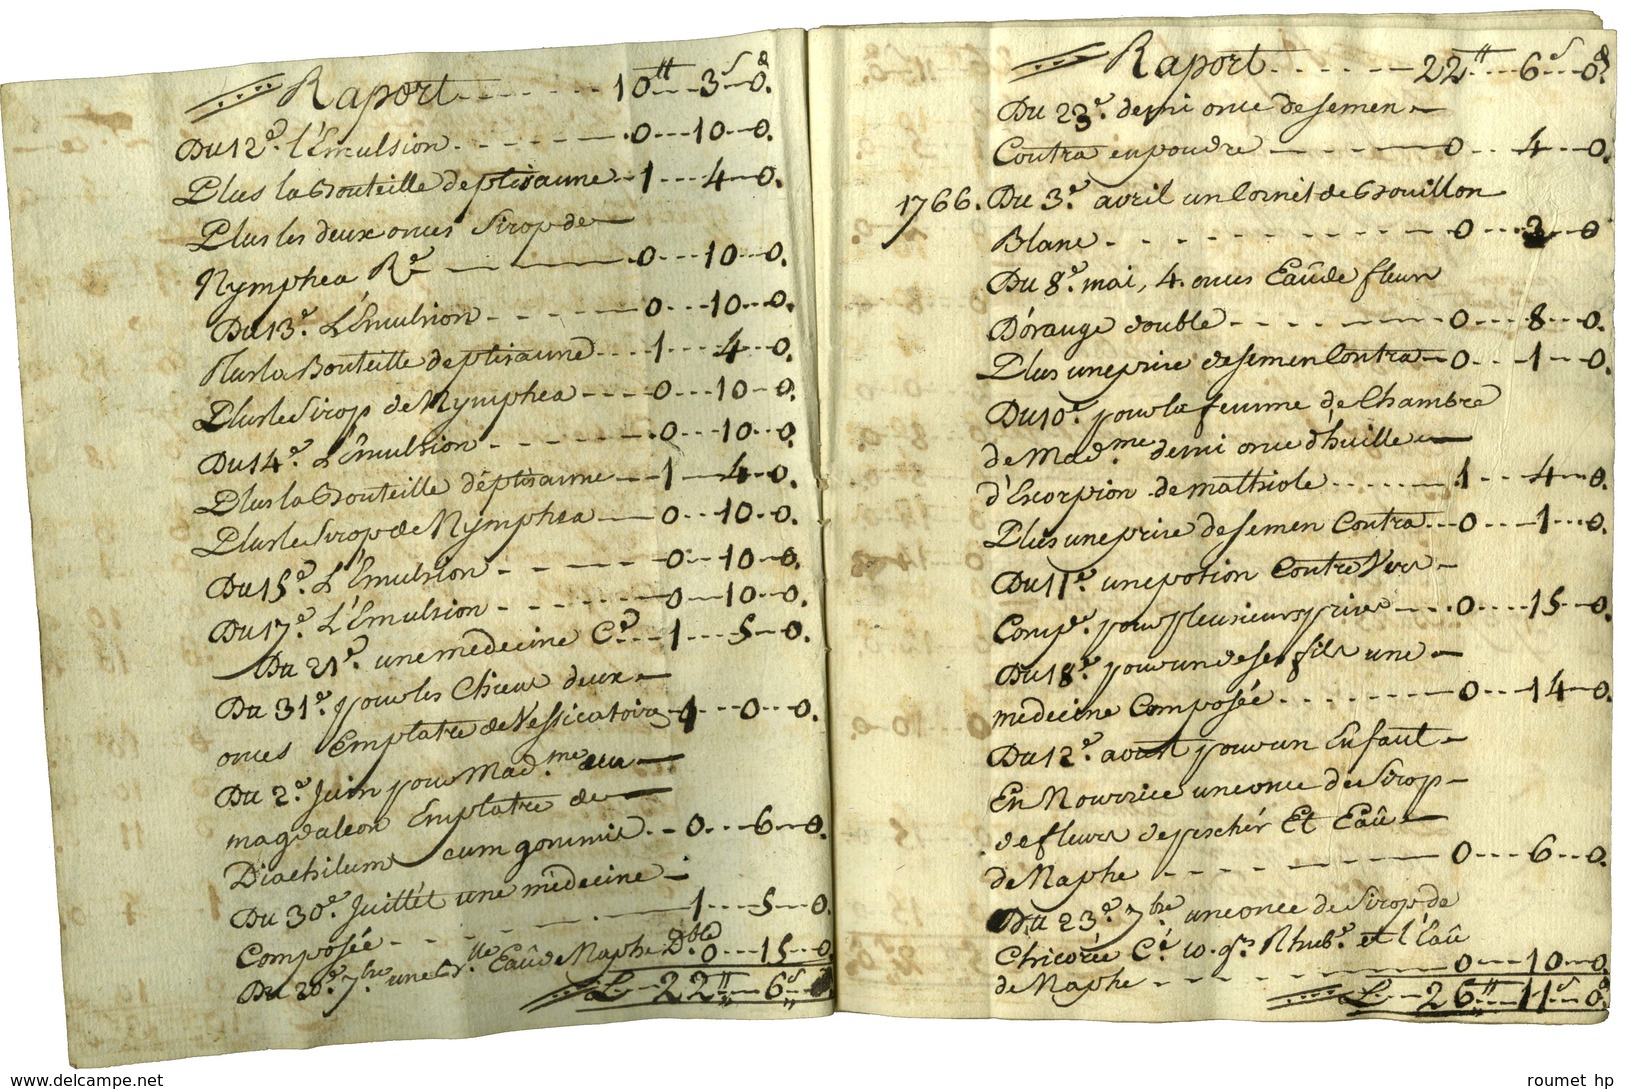 Raport - - - - - 10tt - - 3s - 0d.
Du 12e. l'Emulsion - - - - - - 0 - - - 10 - - 0.
Plus la Bouteille de ptisanne - - 1 - - - 4 - - 0.
Plus les deux onces Sirop de
Nymphea Re - - - 0 - - - 10 - - 0.
Du 13e. L'Emulsion - - - - - - 0 - - - 10 - - 0.
Plus la Bouteille de ptisanne - - - 1 - - - 4 - - 0.
Plus le Sirop de Nymphea - - - 0 - - - 10 - - 0.
Du 14e. L'Emulsion - - - - - - 0 - - - 10 - - 0.
Plus la Bouteille de ptisanne - - 1 - - 4 - - 0.
Plus le Sirop de Nymphea - - 0 - - 10 - - 0.
Du 15e. L'Emulsion - - - - - - 0 - - 10 - - 0.
Du 17e. L'Emulsion - - - - - - 0 - - 10 - - 0.
Du 21e. une medecine Cée - - - 1 - - - 5 - - 0.
Du 31e. pour les Chiens deux
onces Emplatre de Vessicatoire - 1 - - - 0 - - 0.
Du 2e. Juin pour Mad.me un
magdaleon Emplatre de
Diachilum cum gommis - - 0 - - - 6 - - 0.
Du 30e. Juillet une medecine
Composée - - - - - - 1 - - - 5 - - 0.
Du 20e. 7bre une Br.lle Eau de Naphe Dble. 0 - - - 15 - - 0.
L - - 22tt - - 6s - -
Raport - - - - - - 22tt - - 6s - - 0d.
Du 23e. demi once de semen
Contra en poudre - - - - 0 - - 4 - - 0.
1766. Du 3e. avril un Cornet de Bouillon
Blanc - - - - - - - - 0 - - - 2 - - 0
Du 8e. mai, 4. onces Eau de fleurs
D'orange double - - - - - - 0 - - - 8 - - 0.
Plus une prise de semen Contra - 0 - - - 1 - - 0.
Du 10e. pour la femme de Chambre
de Mad.me demi once d'huille
d'Escorpion de mathiole - - - - - - 1 - - - 4 - - 0.
Plus une prise de semen Contra - - 0 - - - 1 - - - 0.
Du 11e. une potion Contre Vers
Compée. pour plusieurs prises - - - 0 - - - 15 - - 0.
Du 18e. pour un de ses fils une
medecine Composée - - - - - - 0 - - - 14 - - 0.
Du 12e. aoust pour un Enfant
En Nourrice une once de Sirop
de fleurs de pescher Et Eau
de Naphe - - - - - - 0 - - - 6 - - 0.
Du 23e. 7bre une once de Sirop de
Chicorée Cé 10. gs Rhub.e et l'Eau
de Naphe - - - - - - 0 - - 10 - - 0
L - - 26tt - - 11s - - 0d.
www.delcampe.net
roumet hp